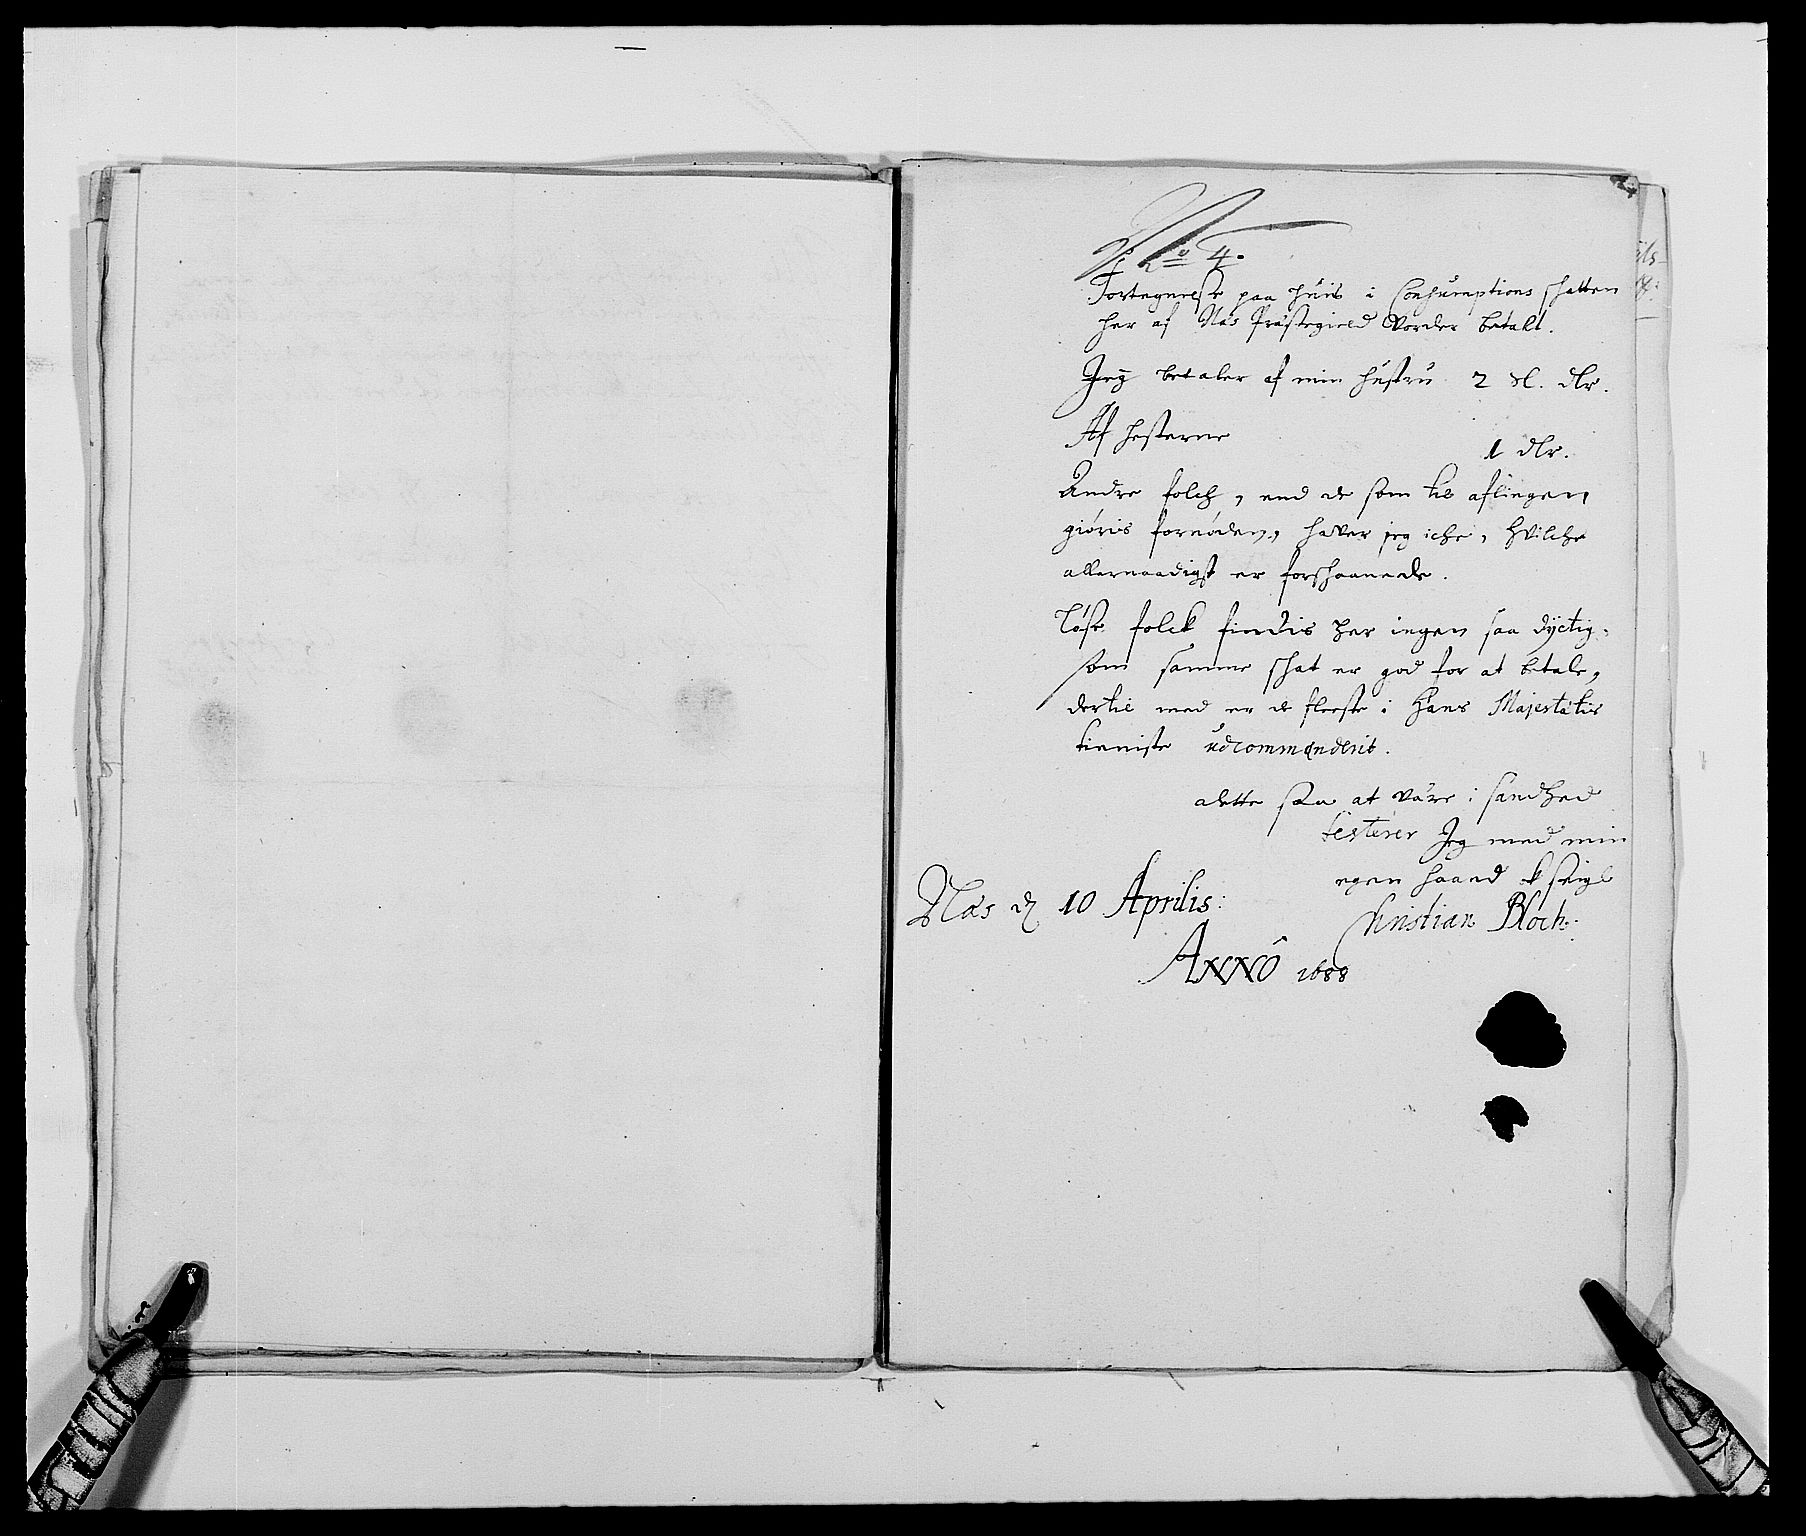 No 4.
Fortegnelse paa huis i Consumptions schatten
her af Næs Præstegield vorder betalt.
Jeg betaler af min hustru 2 Rdlr.
Af hesterne 1 dlr.
Andre folch, end de som til aflingen
giøris fornøden, haver jeg iche, hvilche
allernaadigst er forschaanede.
Løse folck findis her ingen saa dyctig,
som samme schat er god for at betale,
dertil med er de fleeste i Hans Majestætis
tieniste udcommenderit.
dette saa at være i sandhed
testerer Jeg med min
egen haand
Næs d 10 Aprilis:
Christian Bloch.
ANNO 1688